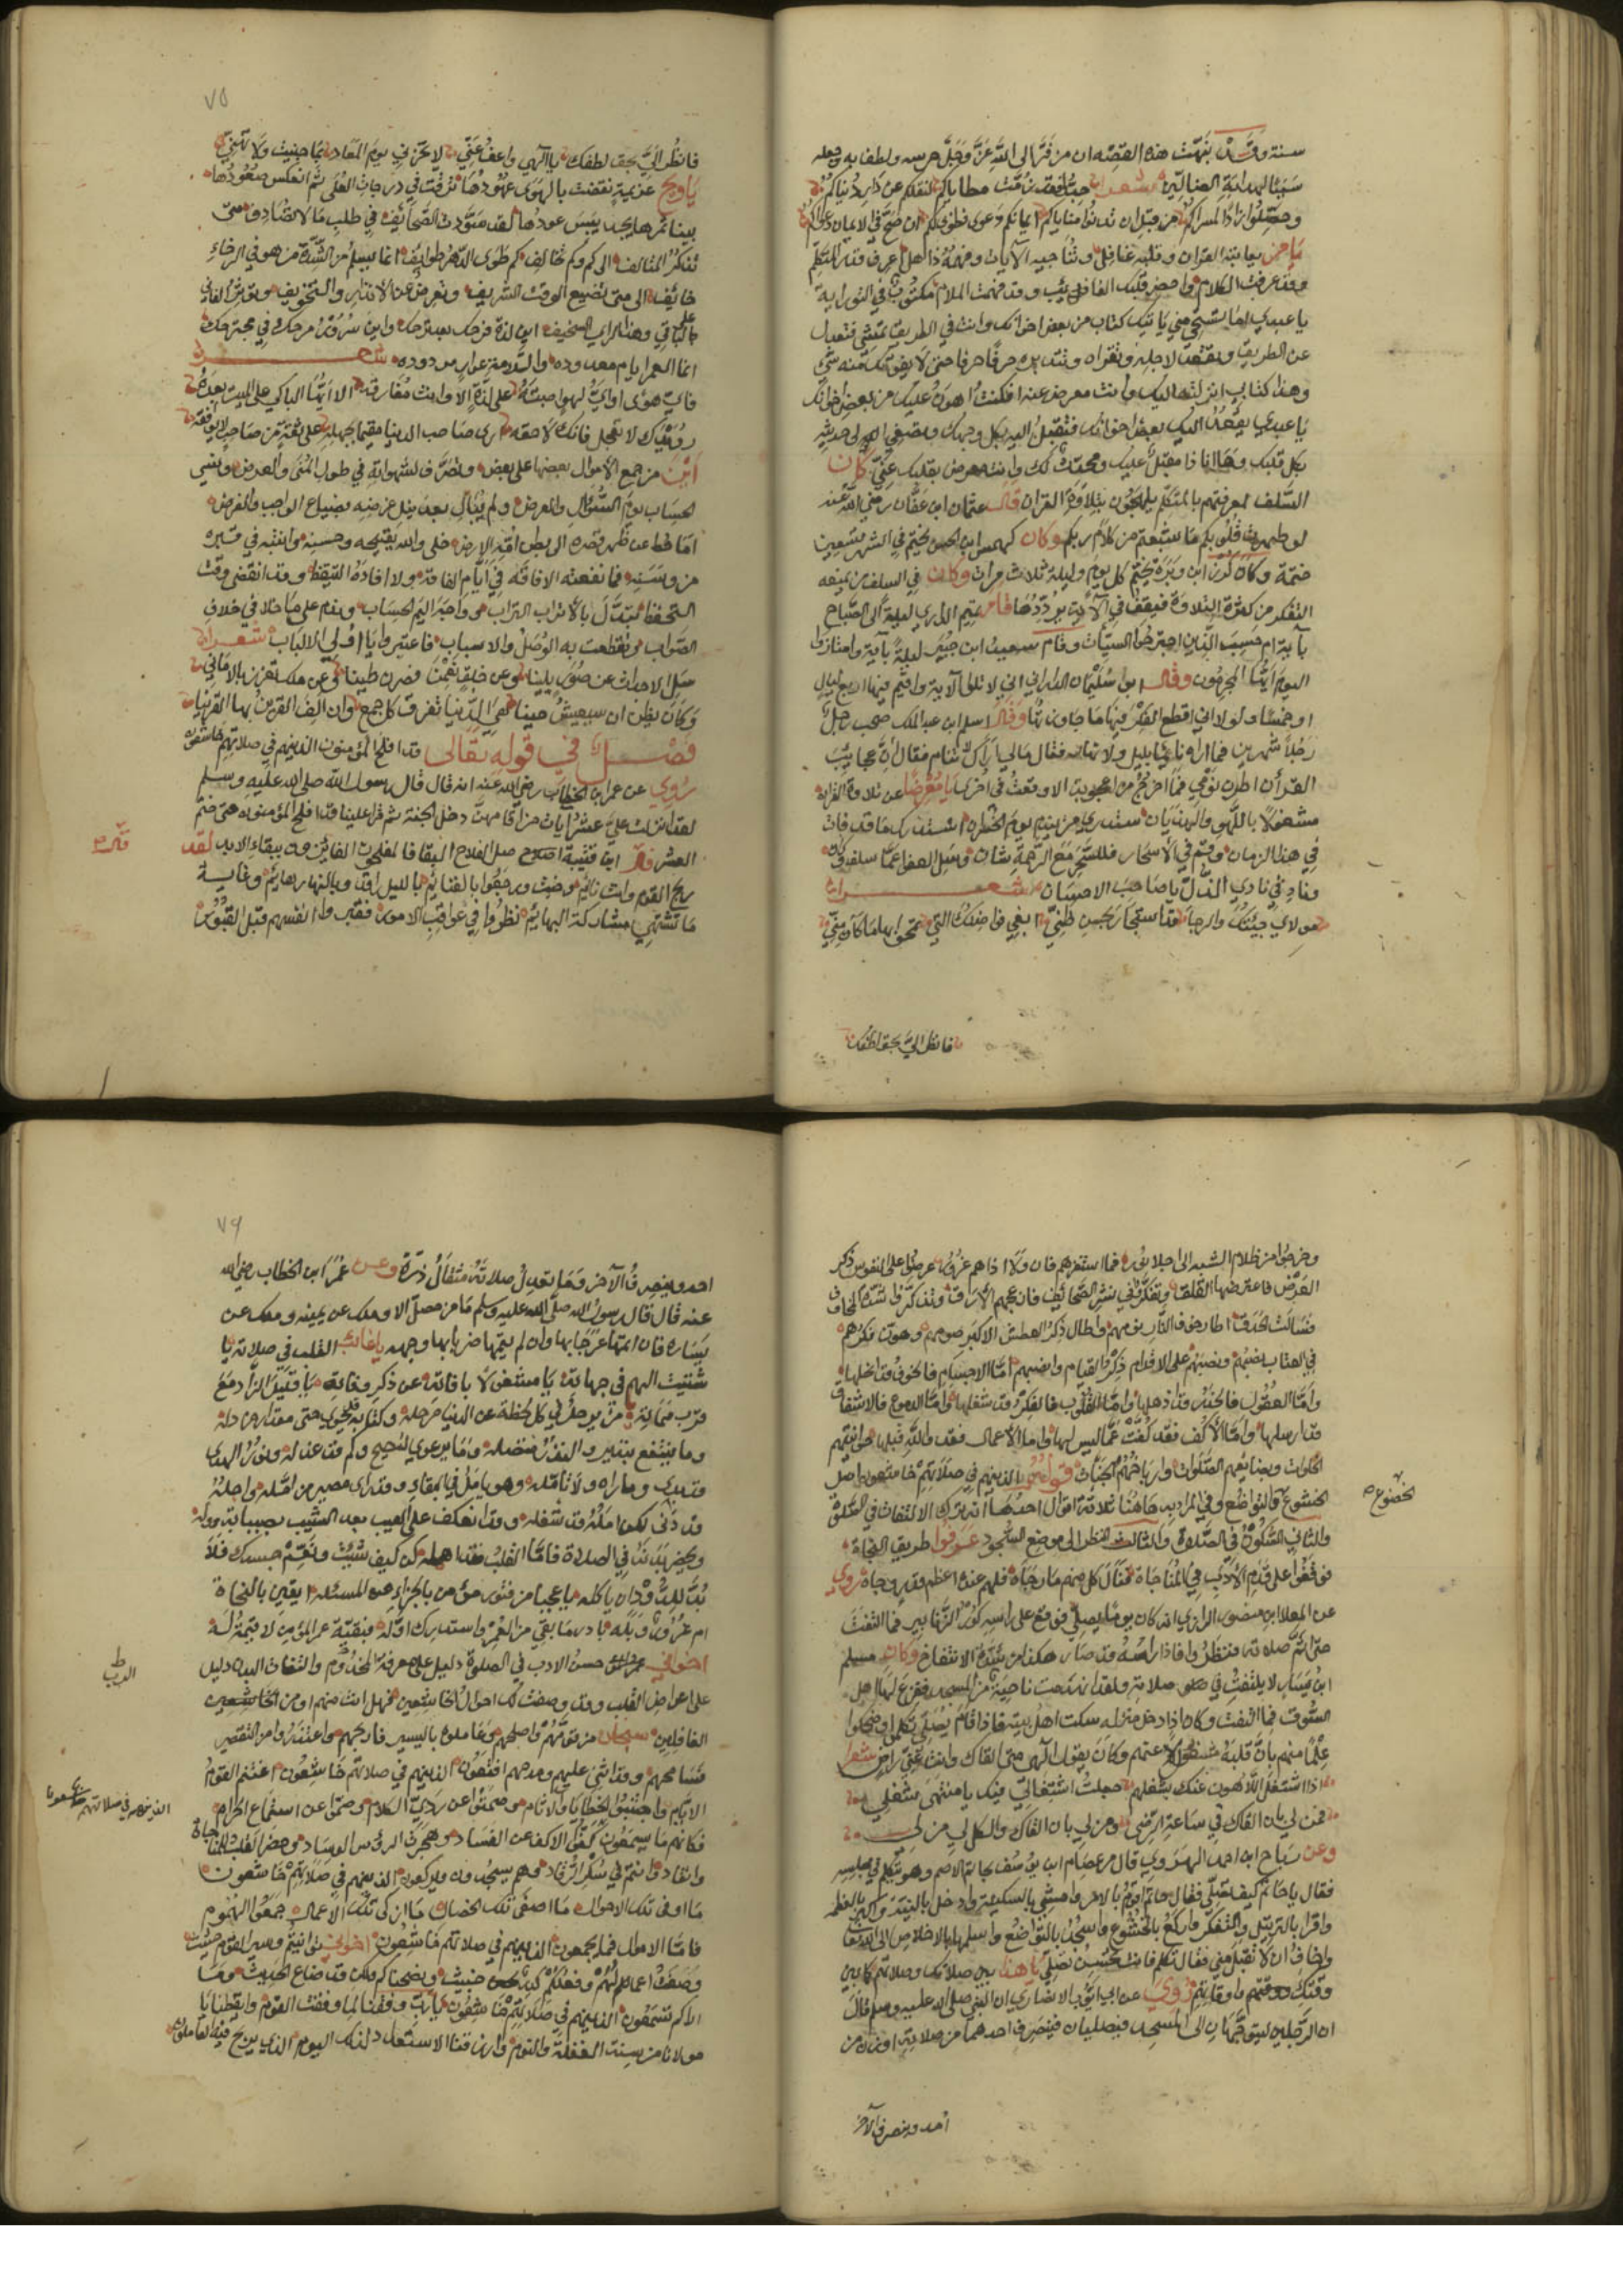 سنة وقد بقيت هذه القصة ان من قرا الى الله عز وجل حرسه ولطف به وجعله
سببا لهداية الضالين شعرا
وحصلوا زادا لمسراكم من قبل ان تدنوا مناياكم
يامن يعاتبه القران وقلبه غافل وتناجيه الآيات وفهمه ذاهل اعرف قدر المتكلم
وقد عرفت الكلام واحضر قلبك الغائب وقد فهمت الملام مكتوب في التوراية
يا عبدي اما تستحي مني ياتيك كتاب من بعض اخوانك وانت في الطريق تمشي فتعدل
عن الطريق وتقعد لاجله وتقراه وتتدبره حرفا حرفا حتى لا يفوتك منه شي
وهذا كتابي انزلته اليك وانت معرض عنه افكنت اهون عليك من بعض اخوانك
يا عبدي يقعد اليك بعض اخوانك فتقبل اليه بكل وجهك وتصغي الى حديثه
بكل قلبك وها انا ذا مقبل عليك ومحدث لك وانت معرض بقلبك عني كان
السلف لمعرفتهم بالمتكلم يلهجون بتلاوة القران قال عثمان ابن عفان رضي الله عنه
لو طهرت قلوبكم ما شبعتم من كلام ربكم وكان كهمس ابن الحسن يختم في الشهر تسعين
ختمة وكان كرز ابن وبرة يختم كل يوم وليلة ثلاث مرات وكان في السلف من يمنعه
التفكر من كثرة التلاوة فيقف في الآية يرددها قام تميم الداري ليلة الى الصباح
بآية ام حسب الذين اجترحوا السيئات وقام سعيد ابن جبير ليلة بآية وامتازوا
اليوم ايها المجرمون وقال ابو سليمان الداراني اني لا تلوا الآية واقيم فيها اربع ليال
او خمسا ولولا اني اقطع الفكر فيها ما جاوزتها وقال اسلم ابن عبد الملك صحب رجل
رجلا شهرين فما راه نائما بليل ولا نهار فقال مالي اراك لا تنام فقال ان عجايب
القرأن اطرن نومي فما اخرج من اعجوبة الا وقعت في اخرى يا معرضا عن تلاوة القران
مشغولا باللهو والهذيان ستدري من يندم يوم الخسران استدرك ما قد فات
في هذا الزمان وقم في الاسحار فللسحر مع الرحمة شان وسل العفو عما سلف
وناد في نادي الذل يا صاحب الاحسان شعرا
مولاي جئتك والرجا قد استجار بحسن ظني ابغي فواضلك التي تمحوا بها ما كان مني
فانظر الي بحق لطفك
٧٥
فانظر الي بحق لطفك يا الهي واعف عني لا تخزني يوم المعاد بما جنيت ولا تهني
يا ويح عزيمة نقضت بالهوى عهودها ترقت في درجات العلى ثم انعكس صعودها
بينا ثمرها يجد يبس عودها لقد سودت الصحائف في طلب ما لا تصادف متى
تذكر المتالف الى كم وكم تخالف كم طوى الدهر طوايف انما يسلم من الشدة من هو في الرخاء
خائف الى متى تضيع الوقت الشريف وتعرض عن الانذار والتخويف وتؤثر الفاني
على الباقي وهذا الراي السخيف اين لذة فرحك بعد ترحك واين سرور مرحك في مجترحك
انما العمر ايام معدودة والسلامة عوار مردودة شعر
فاي هوى او اي لهو اصبته على لذة الا وانت مفارقه الا ايها الباكي على الميت بعده
رويدك لا تعجل فانك لاحقه ارى صاحب الدنيا مقيما بجهله على ثقة من صاحب لا يوافقه
أين من جمع الاموال بعضها على بعض وتصرف لشهواته في طول المنى والعرض ونسي
الحساب يوم السؤال والعرض ولم يبال بعد نيل غرضه بضياع الواجب والفرض
اما حط عن ظهر قصره الى بطن افقر الارض خلى والله بقبيحه وحسنه وانتبه في قبره
من وسنه فما نفعته الافاقة في ايام الفاقة ولا افاده التيقظ وقد انقضى وقت
التحفظ تبدل بالاتراب التراب وواجه اليم الحساب وندم على ما خلا في خلاف
الصواب وتقطعت به الوصل والاسباب فاعتبروا يا اولي الالباب شعرا
سل الاحداث عن صور بلينا وعن خلق نعمن فصرن طينا وعن ملك تعزز بالاماني
وكان يظن ان سيعيش حينا هي الدنيا تفرق كل جمع وان الف القرين بها القرينا
فصل في قوله تعالى قد افلح المؤمنون الذين هم في صلاتهم خاشعون
روي عن عمر ابن الخطاب رضي الله عنه انه قال قال رسول الله صلى الله عليه وسلم
لقد انزلت علي عشر آيات من اقامهن دخل الجنة ثم قرا علينا قد افلح المؤمنون حتى ختم
العشر قال ابن قتيبة اصل الفلاح البقا فالمفلحون الفائزون ببقاء الابد لقد
ربح القوم وانت نائم وخبت ورجعوا بالغنائم بالليل راقد وبالنهار هايم وغاية
ما تشتهي مشاركة البهايم نظروا في عواقب الامور فقبروا انفسهم قبل القبور
وخرجوا من ظلام الشبه الى اجلا نور فما استفزهم فان ولا اذاهم غرور عرضوا على النفوس ذكر
العرض فاعترضها القلق وتفكروا في نشر الصحائف فازعجهم الارق وتذكروا شدة المخاوف
فسالت الحدق اطار خوف النار نومهم واطال ذكر العطش الاكبر صومهم وهون فكرهم
في العتاب نصبهم ونصبهم على الاقدام ذكر القيام وانصبهم اما الاجسام فالخوف قد انحلها
واما العقول فالحذر قد اذهلها واما القلوب فالفكر قد شغلها واما الدموع فالاشفاق
قد ارسلها واما الاكف فقد كفت عما ليس لها واما الاعمال فقد والله قبلها حوانيتهم
الخلوات وبضائعهم الصلوات وارباحهم الجنات قوله تعالى الذين هم في صلاتهم خاشعون اصل
الخشوع والتواضع وفي المراد به هاهنا ثلاثة اقوال احدها انه ترك الالتفات في الصلوة
والثاني السكون في الصلاة والثالث النظر الى موضع السجود عرفوا طريق النجاة
فوقفوا على قدم الادب في المناجاة فنال كل منهم ما رجاه فلهم عنده اعظم قدر وجاه روي
عن المعلا ابن منصور الرازي انه كان يوما يصلي فوقع على راسه كور الزنابير فما التفت
حتى اتم صلاته فنظروا فاذا راسه قد صار هكذا من شدة الانتفاخ وكان مسلم
ابن يسار لا يلتفت في صلاته ولقد انهدمت ناحية من المسجد ففزع لها اهل
السوق فما التفت وكان اذا دخل منزله سكت اهل بيته فاذا قام يصلي تكلموا وضحكوا
علما منهم بان قلبه مشغول عنهم وكان يقول الهي متى القاك وانت عني راض شعرا
اذا اشتغل اللاهون عنك بشغلهم جعلت اشتغالي فيك يا منتهى شغلي
فمن لي بان القاك في ساعة الرضى ومن لي بان القاك والكل لي من لي
وعن رباح ابن احمد الهروي قال مر عصام ابن يوسف بحاتم الاصم وهو يتكلم في مجلسه
فقال يا حاتم كيف تصلي فقال حاتم اقوم بالامر وامشي بالسكينة وادخل بالنية واكبر بالعظمة
واقرا بالترتيل والتفكر واركع بالخشوع واسجد بالتواضع واسلمها بالاخلاص الى الله تعالى
واخاف ان لا تقبل مني فقال تكلم فانت تحسن تصلي يا هذا بين صلاتك وصلاتهم كما بين
وقتك ووقتهم واوقاتهم روي عن ابي ايوب الانصاري ان النبي صلى الله عليه وسلم قال
ان الرجلين ليتوجهان الى المسجد فيصليان فينصرف احدهما من صلاته اوزن من
الخضوع
احد وينصرف الآخر
٧٦
احد وينصرف الآخر وما تعدل صلاته مثقال ذرة وعن عمر ابن الخطاب رضي الله
عنه قال قال رسول الله صلى الله عليه وسلم ما من مصل الا وملك عن يمينه وملك عن
يساره فان اتمها عرجا بها وان لم يتمها ضربا بها وجهه يا غائب القلب في صلاته يا
شتيت الهم في جهاته يا مشغولا بافاته عن ذكر وفاته يا قليل الزاد مع
قرب مماته يا من يرحل في كل لحظة عن الدنيا مرحلة وكتابه قد حوى حتى مقدار خردلة
وما ينتفع بنذير والنذر متصلة وما يرعوي لنصيح وكم قد عذله ونور الهدى
قد بدى وما راه ولا تامله وهو يامل في البقاء وقد راى مصير من امله واجله
قد دنى لكن امله قد شغله وقد انعكف على العيب بعد الشيب بصبابة ووله
ويحضر بدنه في الصلاة فاما القلب فقد اهمله كن كيف شئت ونعم جسدك فلا
بد للدود ان ياكله يا عجبا من فتور مؤمن بالجزاء والمسئلة ايقين بالنجاة
ام غرور وبله بادر ما بقي من العمر واستدرك اوله فبقية عمر المؤمن لا قيمة له
اخواني حسن الادب في الصلوة دليل على معرفة المخدوم والتفات البدن دليل
على اعراض القلب وقد وصفت لك احوال الخاشعين فهل انت منهم او من الخاشعين
الغافلين سبحان من قومهم واصلحهم وعاملوه باليسير فاربحهم واعتذروا من التقصير
فسامحهم وقد اثنى عليهم ومدحهم افتعقلون الذين هم في صلاتهم خاشعون اغتنم القوم
الايام واجتنبوا الخطايا والاثام وصمتوا عن ردي الكلام وصموا عن استماع الحرام
فكانهم ما يسمعون كفوا الاكف عن الفساد وهجرت الرؤس الوساد وحضر القلب للمناجاة
وانقاد وانتم في سكر الرقاد وهم يسجدون ويركعون الذين هم في صلاتهم خاشعون
ما اوفى تلك الاحوال ما اصفى تلك الخصال ما ازكى تلك الاعمال جمعوا الهموم
فاما الاموال فما يجمعون الذين هم في صلاتهم خاشعون اخواني توانيتم وسير القوم حثيث
وصفت اعمالهم وفعلكم كله خبيث ونصحناكم ولكن قد ضاع الحديث وما
اراكم تسمعون الذين هم في صلاتهم خاشعون يا رب وفقنا لما وفقت القوم وايقظنا يا
مولانا من سنة الغفلة والنوم وارزقنا الاستعداد لذلك اليوم الذي يربح فيه العاملون
الذين هم في صلاتهم خاشعون